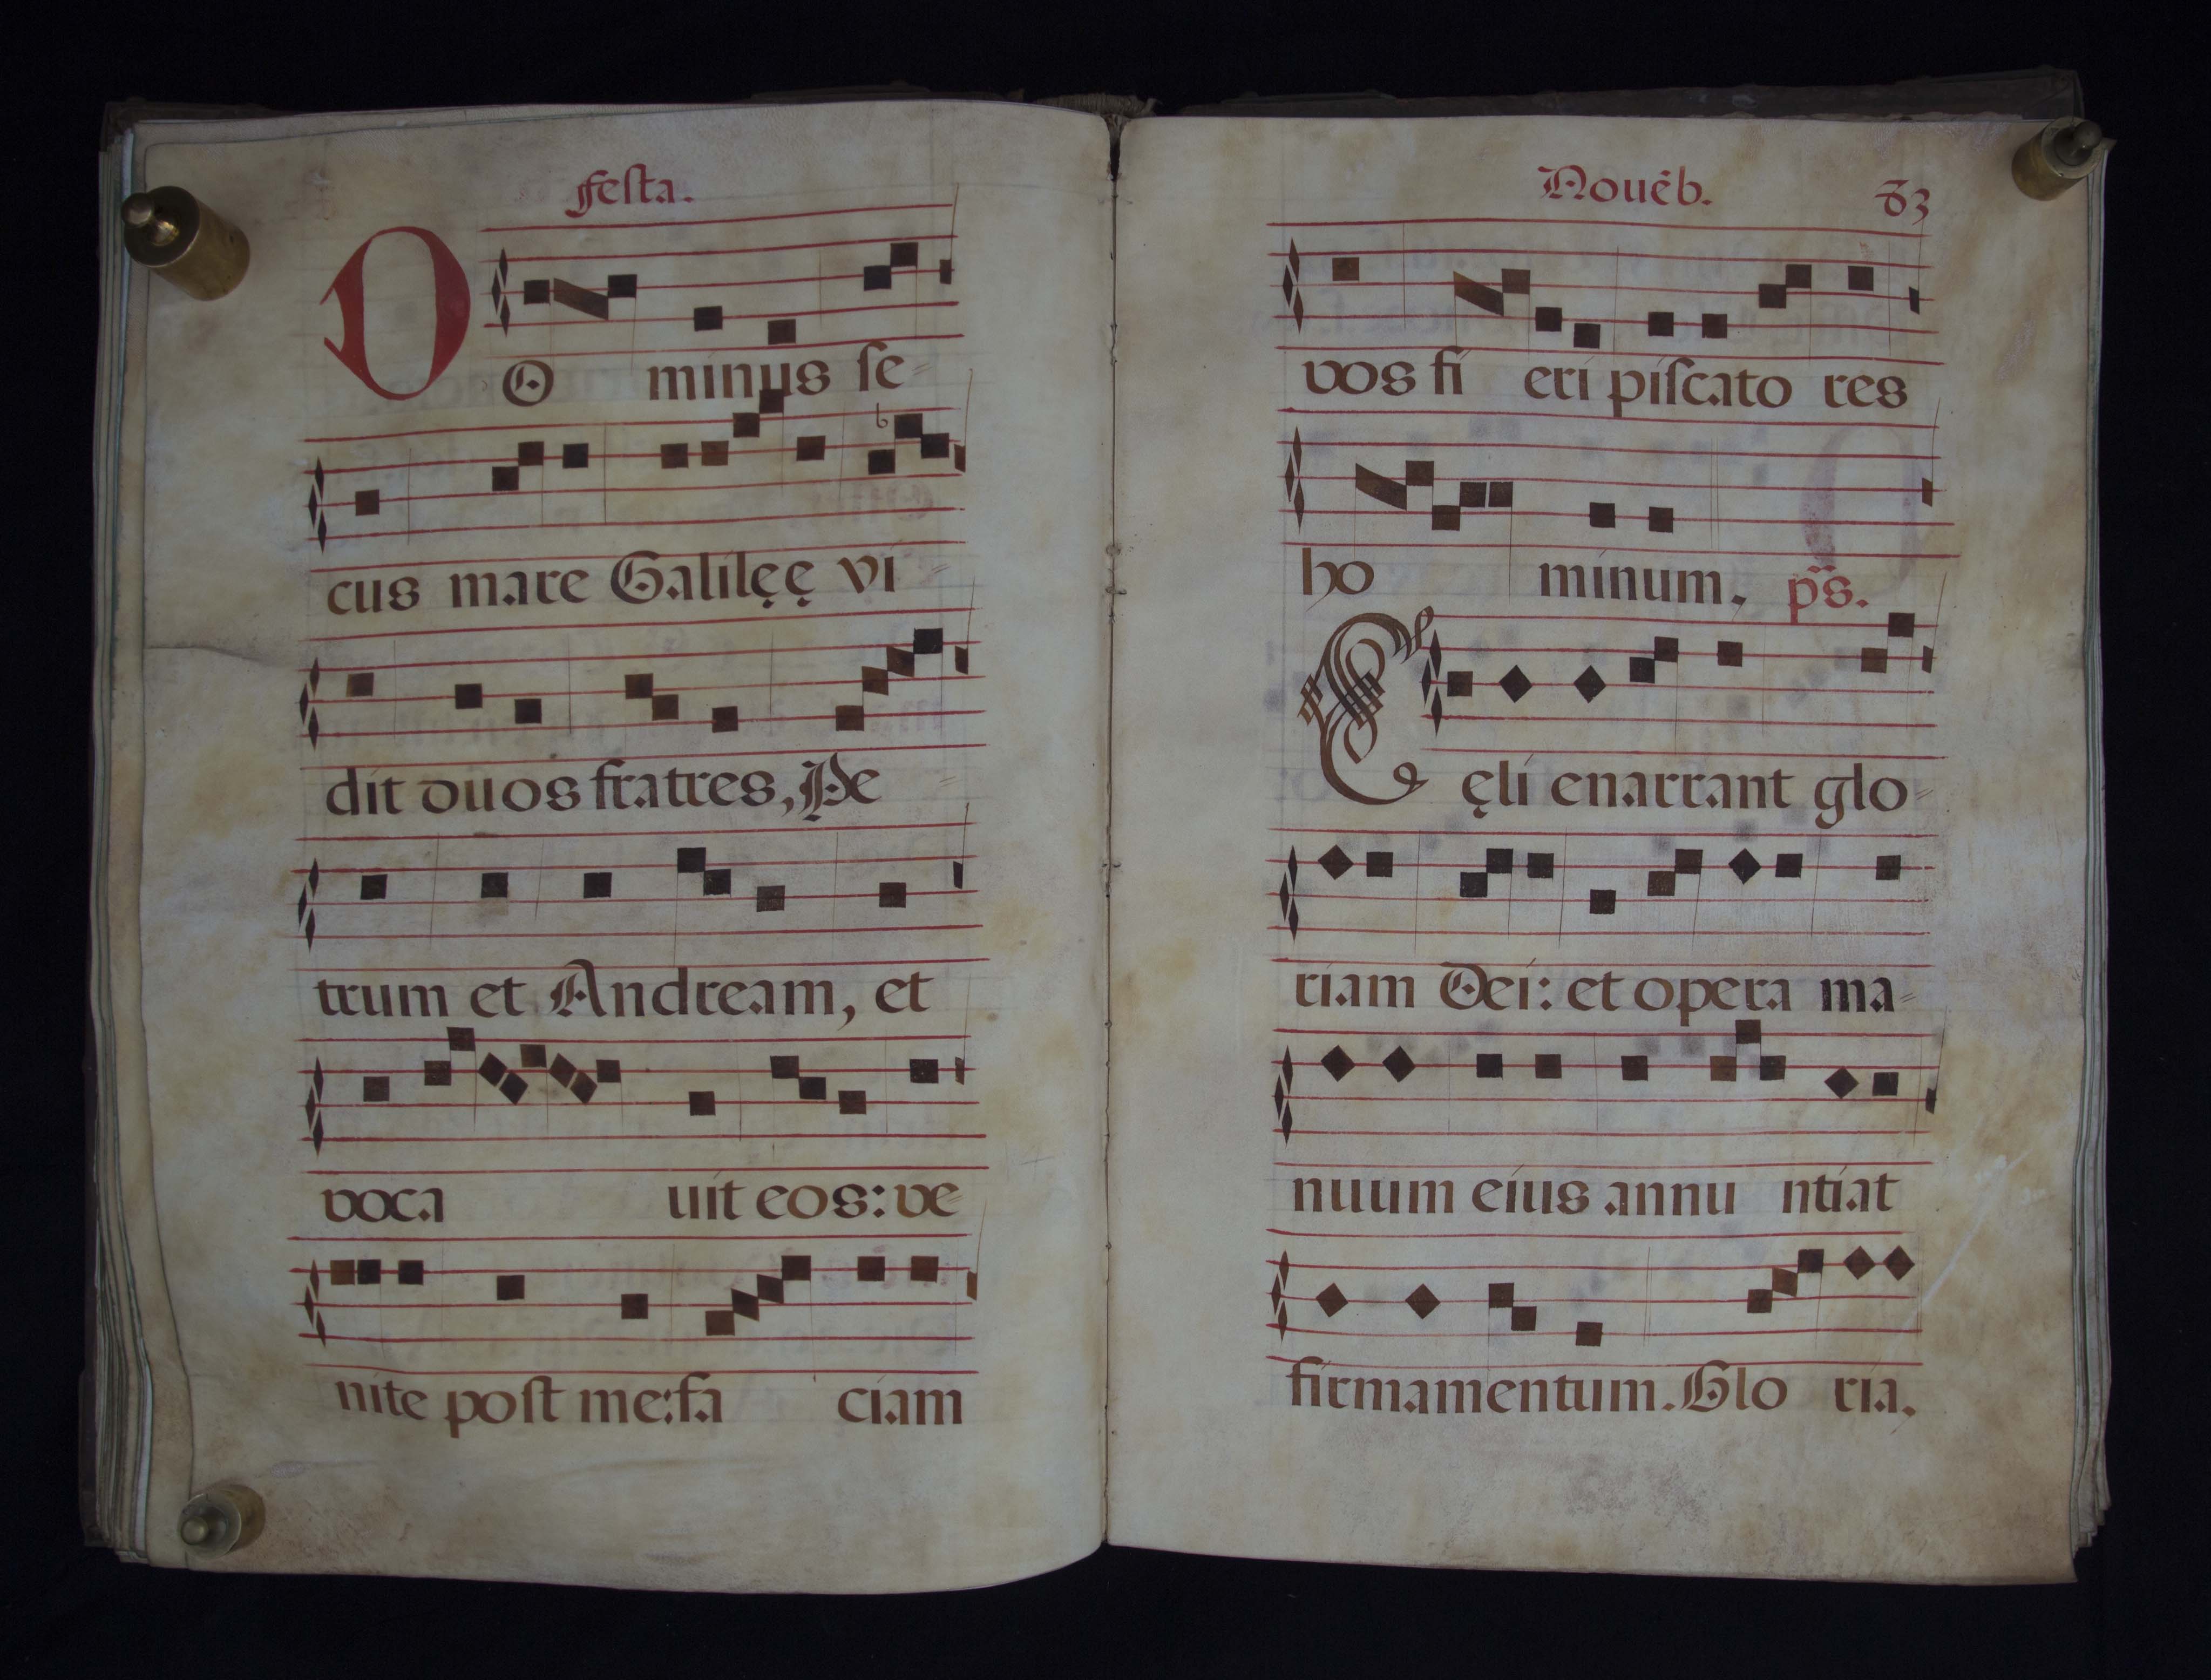 Festa.
DO minus se-
cus mare Galilęę vi-
dit duos fratres, Pe
trum et Andream, et
voca uit eos: ve-
nite post me: fa ciam
Nouẽb. 83
vos fi eri piscato res
ho minum. ps.
Cęli enarrant glo-
riam Dei: et opera ma-
nuum eius annu ntiat
firmamentum. Glo ria.